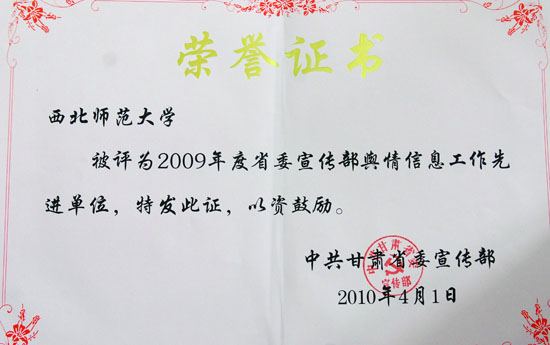 荣誉证书
西北师范大学
被评为2009年度省委宣传部舆情信息工作先
进单位，特发此证，以资鼓励。
中共甘肃省委宣传部
中共甘肃省委
宣传部
2010年4月1日